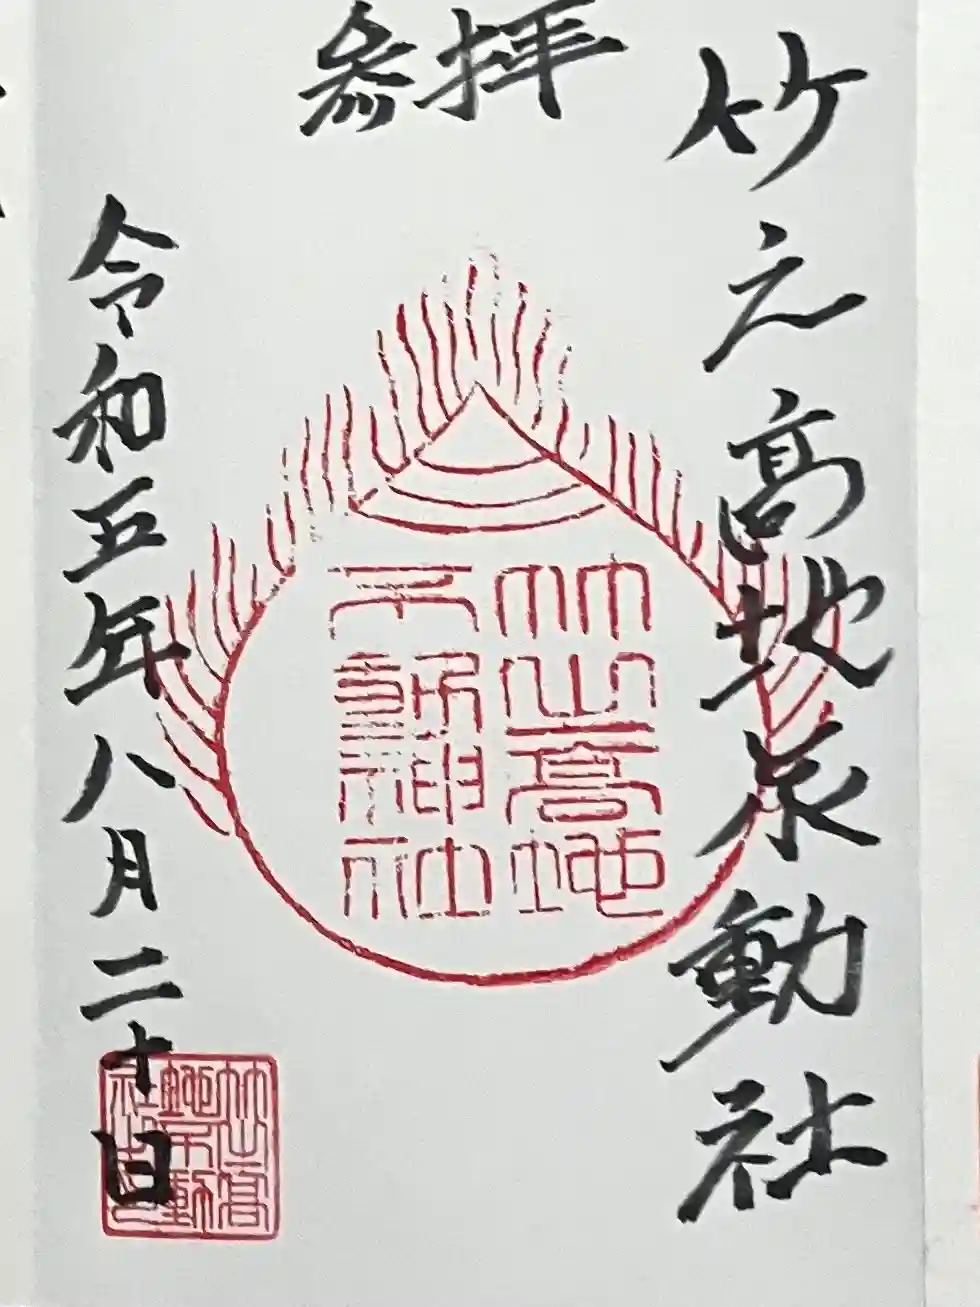 参拝
竹之高地不動社
竹之高地
不動神社
令和五年八月二十日
竹之高
地不動
社之印